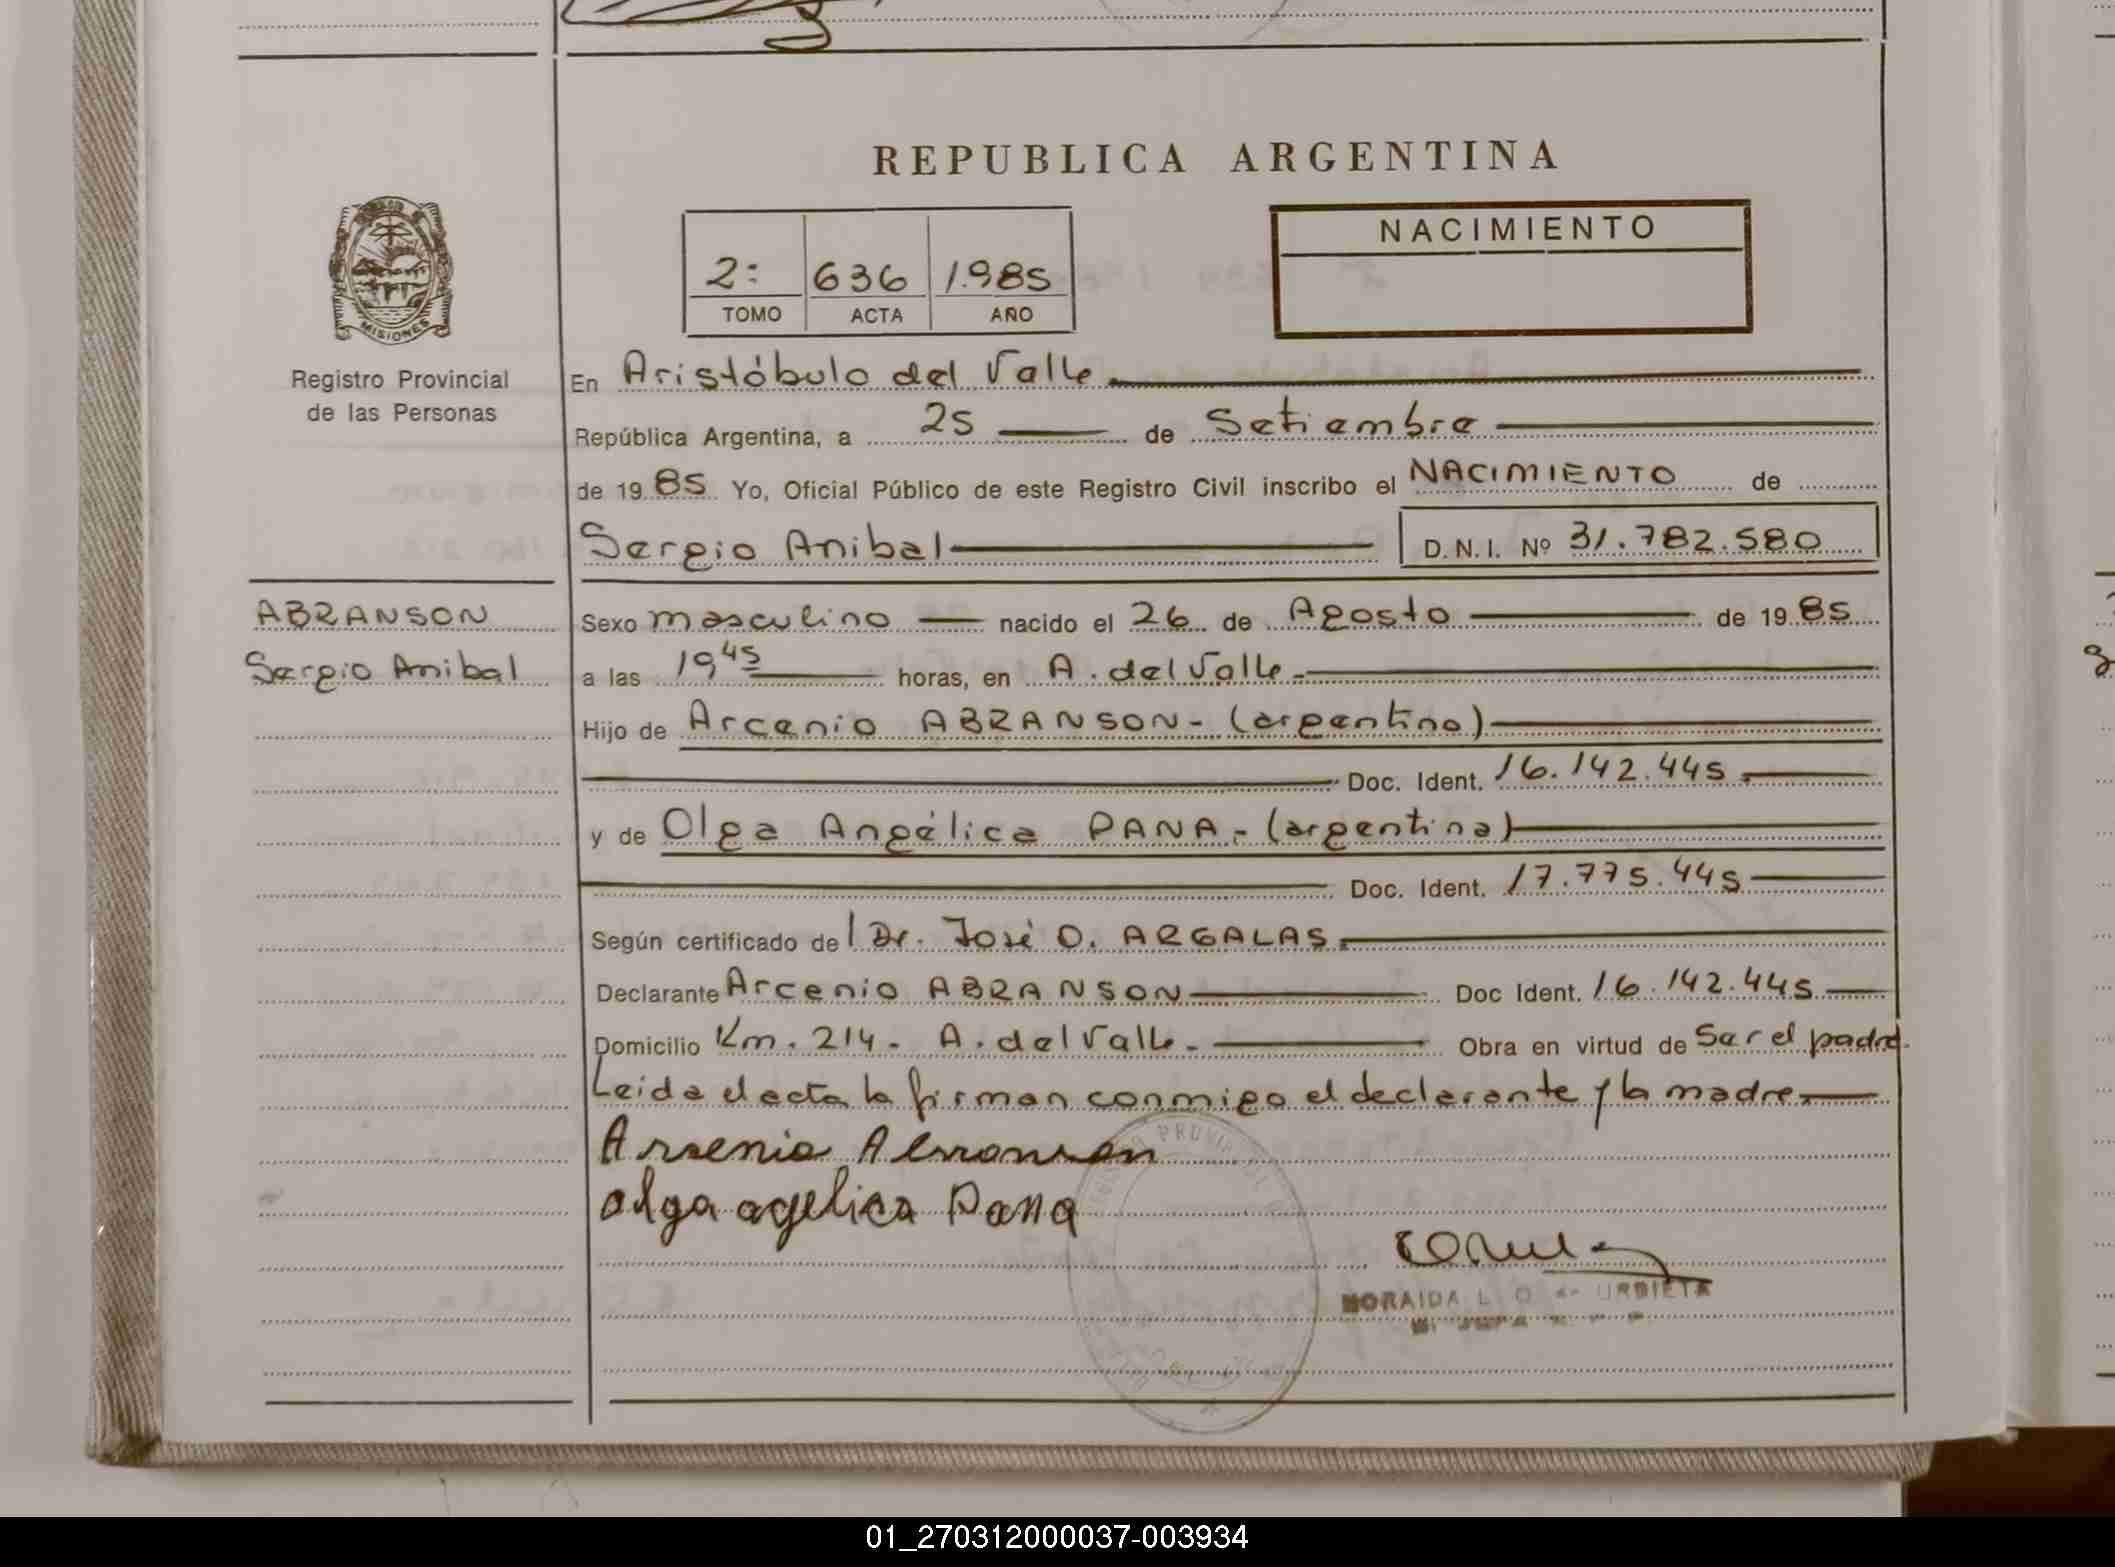 REPUBLICA ARGENTINA
NACIMIENTO
2: 636 1.985
TOMO ACTA AÑO
MISIONES
Registro Provincial
de las Personas
En Aristóbulo del Valle.
República Argentina, a 25 de Setiembre
de 19 85 Yo, Oficial Público de este Registro Civil inscribo el NACIMIENTO de
Sergio Anibal D.N.I. Nº 31.782.580
ABRANSON
Sergio Anibal
Sexo masculino nacido el 26 de Agosto de 19 85
a las 19 45 horas, en A. del Valle.
Hijo de Arcenio ABRANSON - (argentino)
Doc. Ident. 16.142.445.
y de Olga Angélica PANA.- (argentina)
Doc. Ident. 17.775.445
Según certificado del Dr. José O. ARGALAS.
Declarante Arcenio ABRANSON Doc Ident. 16.142.445
Domicilio Km. 214 - A. del Valle. Obra en virtud de Ser el padre.
Leida el acta la firman conmigo el declarante y la madre.
Arsenio
olga agelica Pana
NORAIDA L. O. de URBIETA
01_270312000037-003934